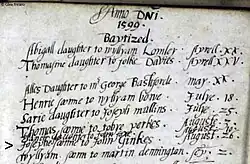 Anno DNI
1599.
Baptized.
Abigall daughter to Wyllyam Lomley Aprel. XX.
Thomasine daughter to Johe Davies Aprel. XXV.
Alles Daughter to mr George Bashforde may. XX.
Henrie sonne to Wyllyam Bowe Julye. 18.
Sarie daughter to Joseph mullins Julye. 25.
Thomas sonne to Johye Yerkes August.
Josephe sonne to John Ginkes August. 26
Wyllyam. sonne to martin dennington. Sep. 2.